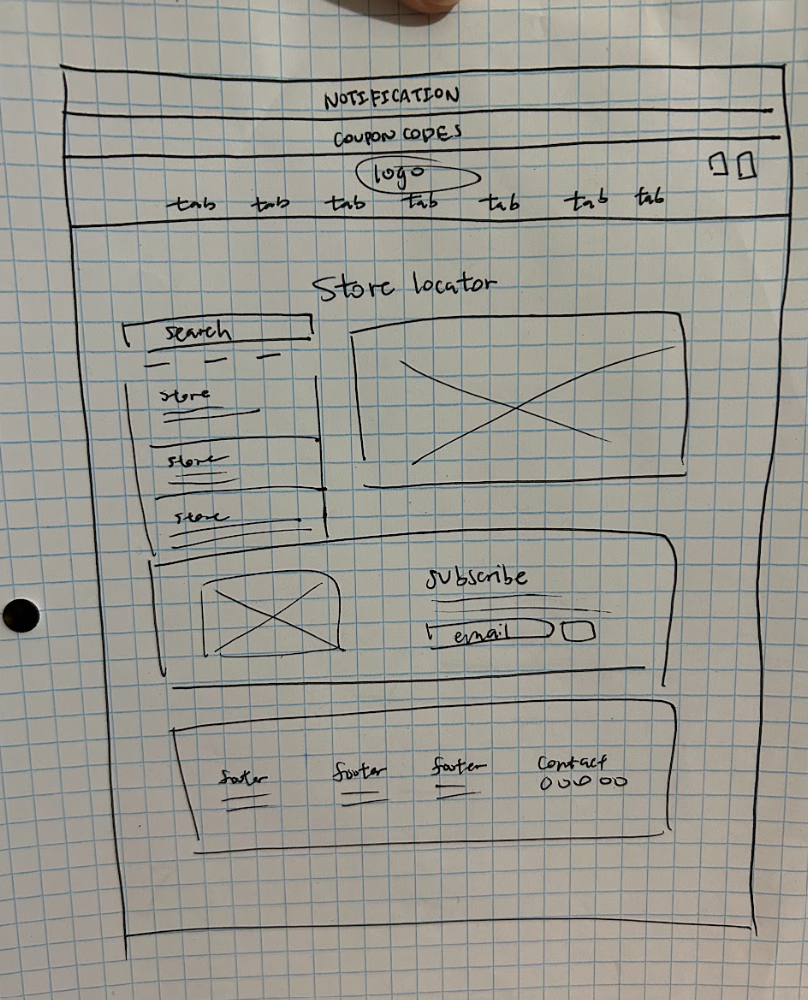 NOTIFICATION
COUPON CODES
logo
tab tab tab tab tab tab tab
Store locator
search
store
store
store
subscribe
email
footer footer footer contact